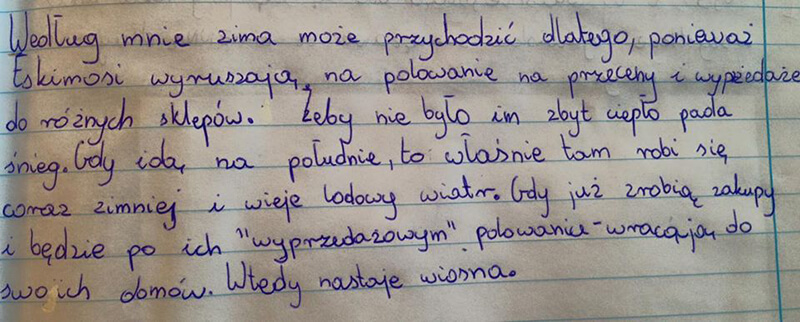 Według mnie zima może przychodzić dlatego, ponieważ
Eskimosi wyruszają na polowanie na przeceny i wyprzedaże
do różnych sklepów. Żeby nie było im zbyt ciepło pada
śnieg. Gdy idą na południe, to właśnie tam robi się
coraz zimniej i wieje lodowy wiatr. Gdy już zrobią zakupy
i będzie po ich "wyprzedażowym" polowaniu - wracają do
swoich domów. Wtedy nastaje wiosna.